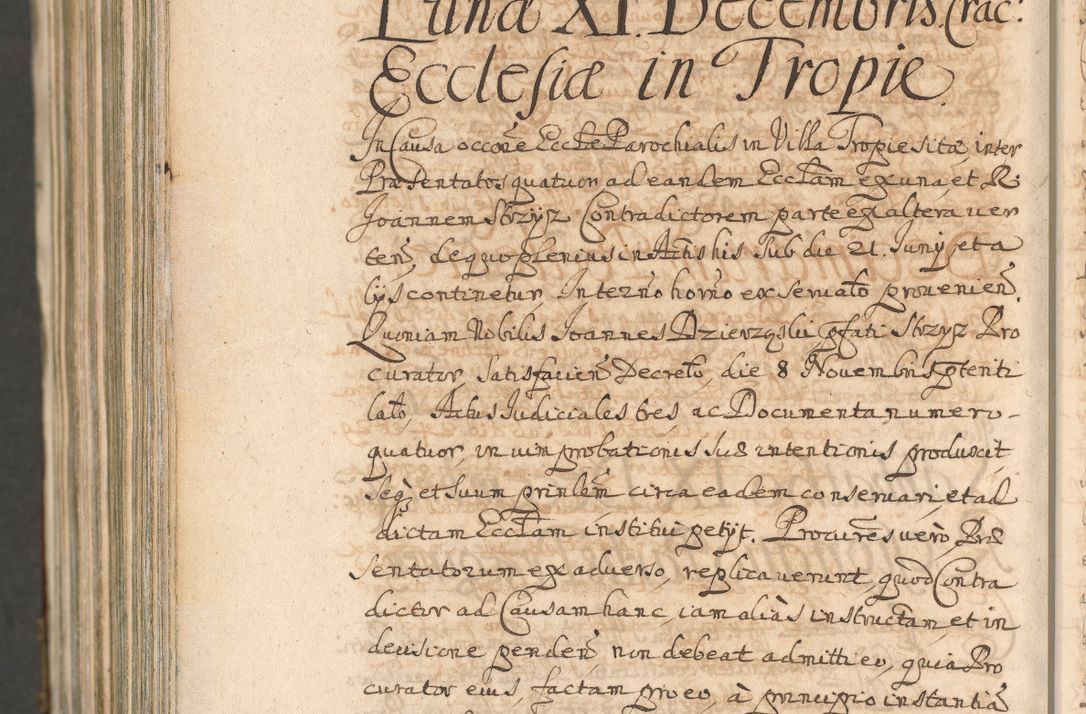 Lunæ XI. Decembris. Crac:
Ecclesiæ in Tropie.
In Causa occōne Ecclæ Parochialis in Villa Tropie sitæ, inter
Præsentatos quatuor ad eandem Ecclām ex una, et R.
Joannem Strzysz Contradictorem parte ex altera ver
teñ, de quo plenius in Actis his sub die 21. Junij, et a
lijs continetur, In termo hormo ex servato provenieñ.
Quoniam Nobilis Joannes Dzierzqski pfati Strzysz Pro
curator, satisfacieñ Decreto, die 8 Novembris ptenti
lato, Actus Judiciales tres, ac Documenta numero
quatuor, in vim probationis suæ intentionis producit
seq3 et suum prinlem circa eadem conservari, et ad
dictam Ecclām institui petijt. Procures verò Præ
sentatorum ex adverso, replicaverunt, quod Contra
dictor ad Causam hanc, iam aliàs instructam, et in
decisione pendeñ, non debeat admitti eo, quia Pro
curator eius, factam pro eo, à principio instantiâ